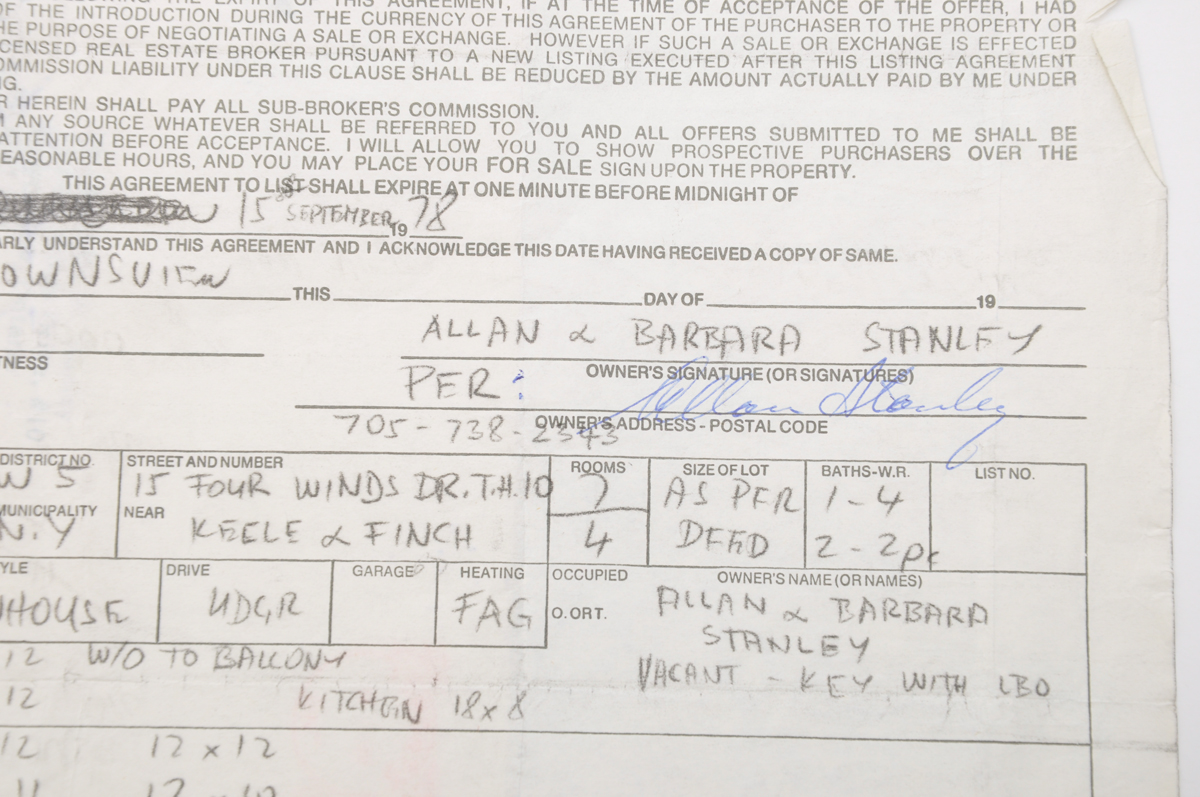 OF THE INTRODUCTION DURING THE CURRENCY OF THIS AGREEMENT OF THE PURCHASER TO THE PROPERTY OR
THE PURPOSE OF NEGOTIATING A SALE OR EXCHANGE. HOWEVER IF SUCH A SALE OR EXCHANGE IS EFFECTED
CENSED REAL ESTATE BROKER PURSUANT TO A NEW LISTING EXECUTED AFTER THIS LISTING AGREEMENT
OMMISSION LIABILITY UNDER THIS CLAUSE SHALL BE REDUCED BY THE AMOUNT ACTUALLY PAID BY ME UNDER
G.
R HEREIN SHALL PAY ALL SUB-BROKER'S COMMISSION.
M ANY SOURCE WHATEVER SHALL BE REFERRED TO YOU AND ALL OFFERS SUBMITTED TO ME SHALL BE
ATTENTION BEFORE ACCEPTANCE. I WILL ALLOW YOU TO SHOW PROSPECTIVE PURCHASERS OVER THE
EASONABLE HOURS, AND YOU MAY PLACE YOUR FOR SALE SIGN UPON THE PROPERTY.
THIS AGREEMENT TO LIST SHALL EXPIRE AT ONE MINUTE BEFORE MIDNIGHT OF
15 SEPTEMBER 19 78
ARLY UNDERSTAND THIS AGREEMENT AND I ACKNOWLEDGE THIS DATE HAVING RECEIVED A COPY OF SAME.
OWNSVIEW THIS DAY OF 19
ALLAN & BARBARA STANLEY
TNESS OWNER'S SIGNATURE (OR SIGNATURES)
PER: Allan Stanley
705-738-2343 OWNER'S ADDRESS - POSTAL CODE
DISTRICT NO. STREET AND NUMBER ROOMS SIZE OF LOT BATHS-W.R. LIST NO.
W 5 15 FOUR WINDS DR. T.H. 10 7 AS PER 1-4
MUNICIPALITY NEAR
N.Y KEELE & FINCH 4 DEED 2-2pc
YLE DRIVE GARAGE HEATING OCCUPIED OWNER'S NAME (OR NAMES)
NHOUSE UDGR FAG O. OR T. ALLAN & BARBARA
STANLEY
12 W/O TO BALCONY VACANT - KEY WITH LBO
12 KITCHEN 18x8
12 12 x 12